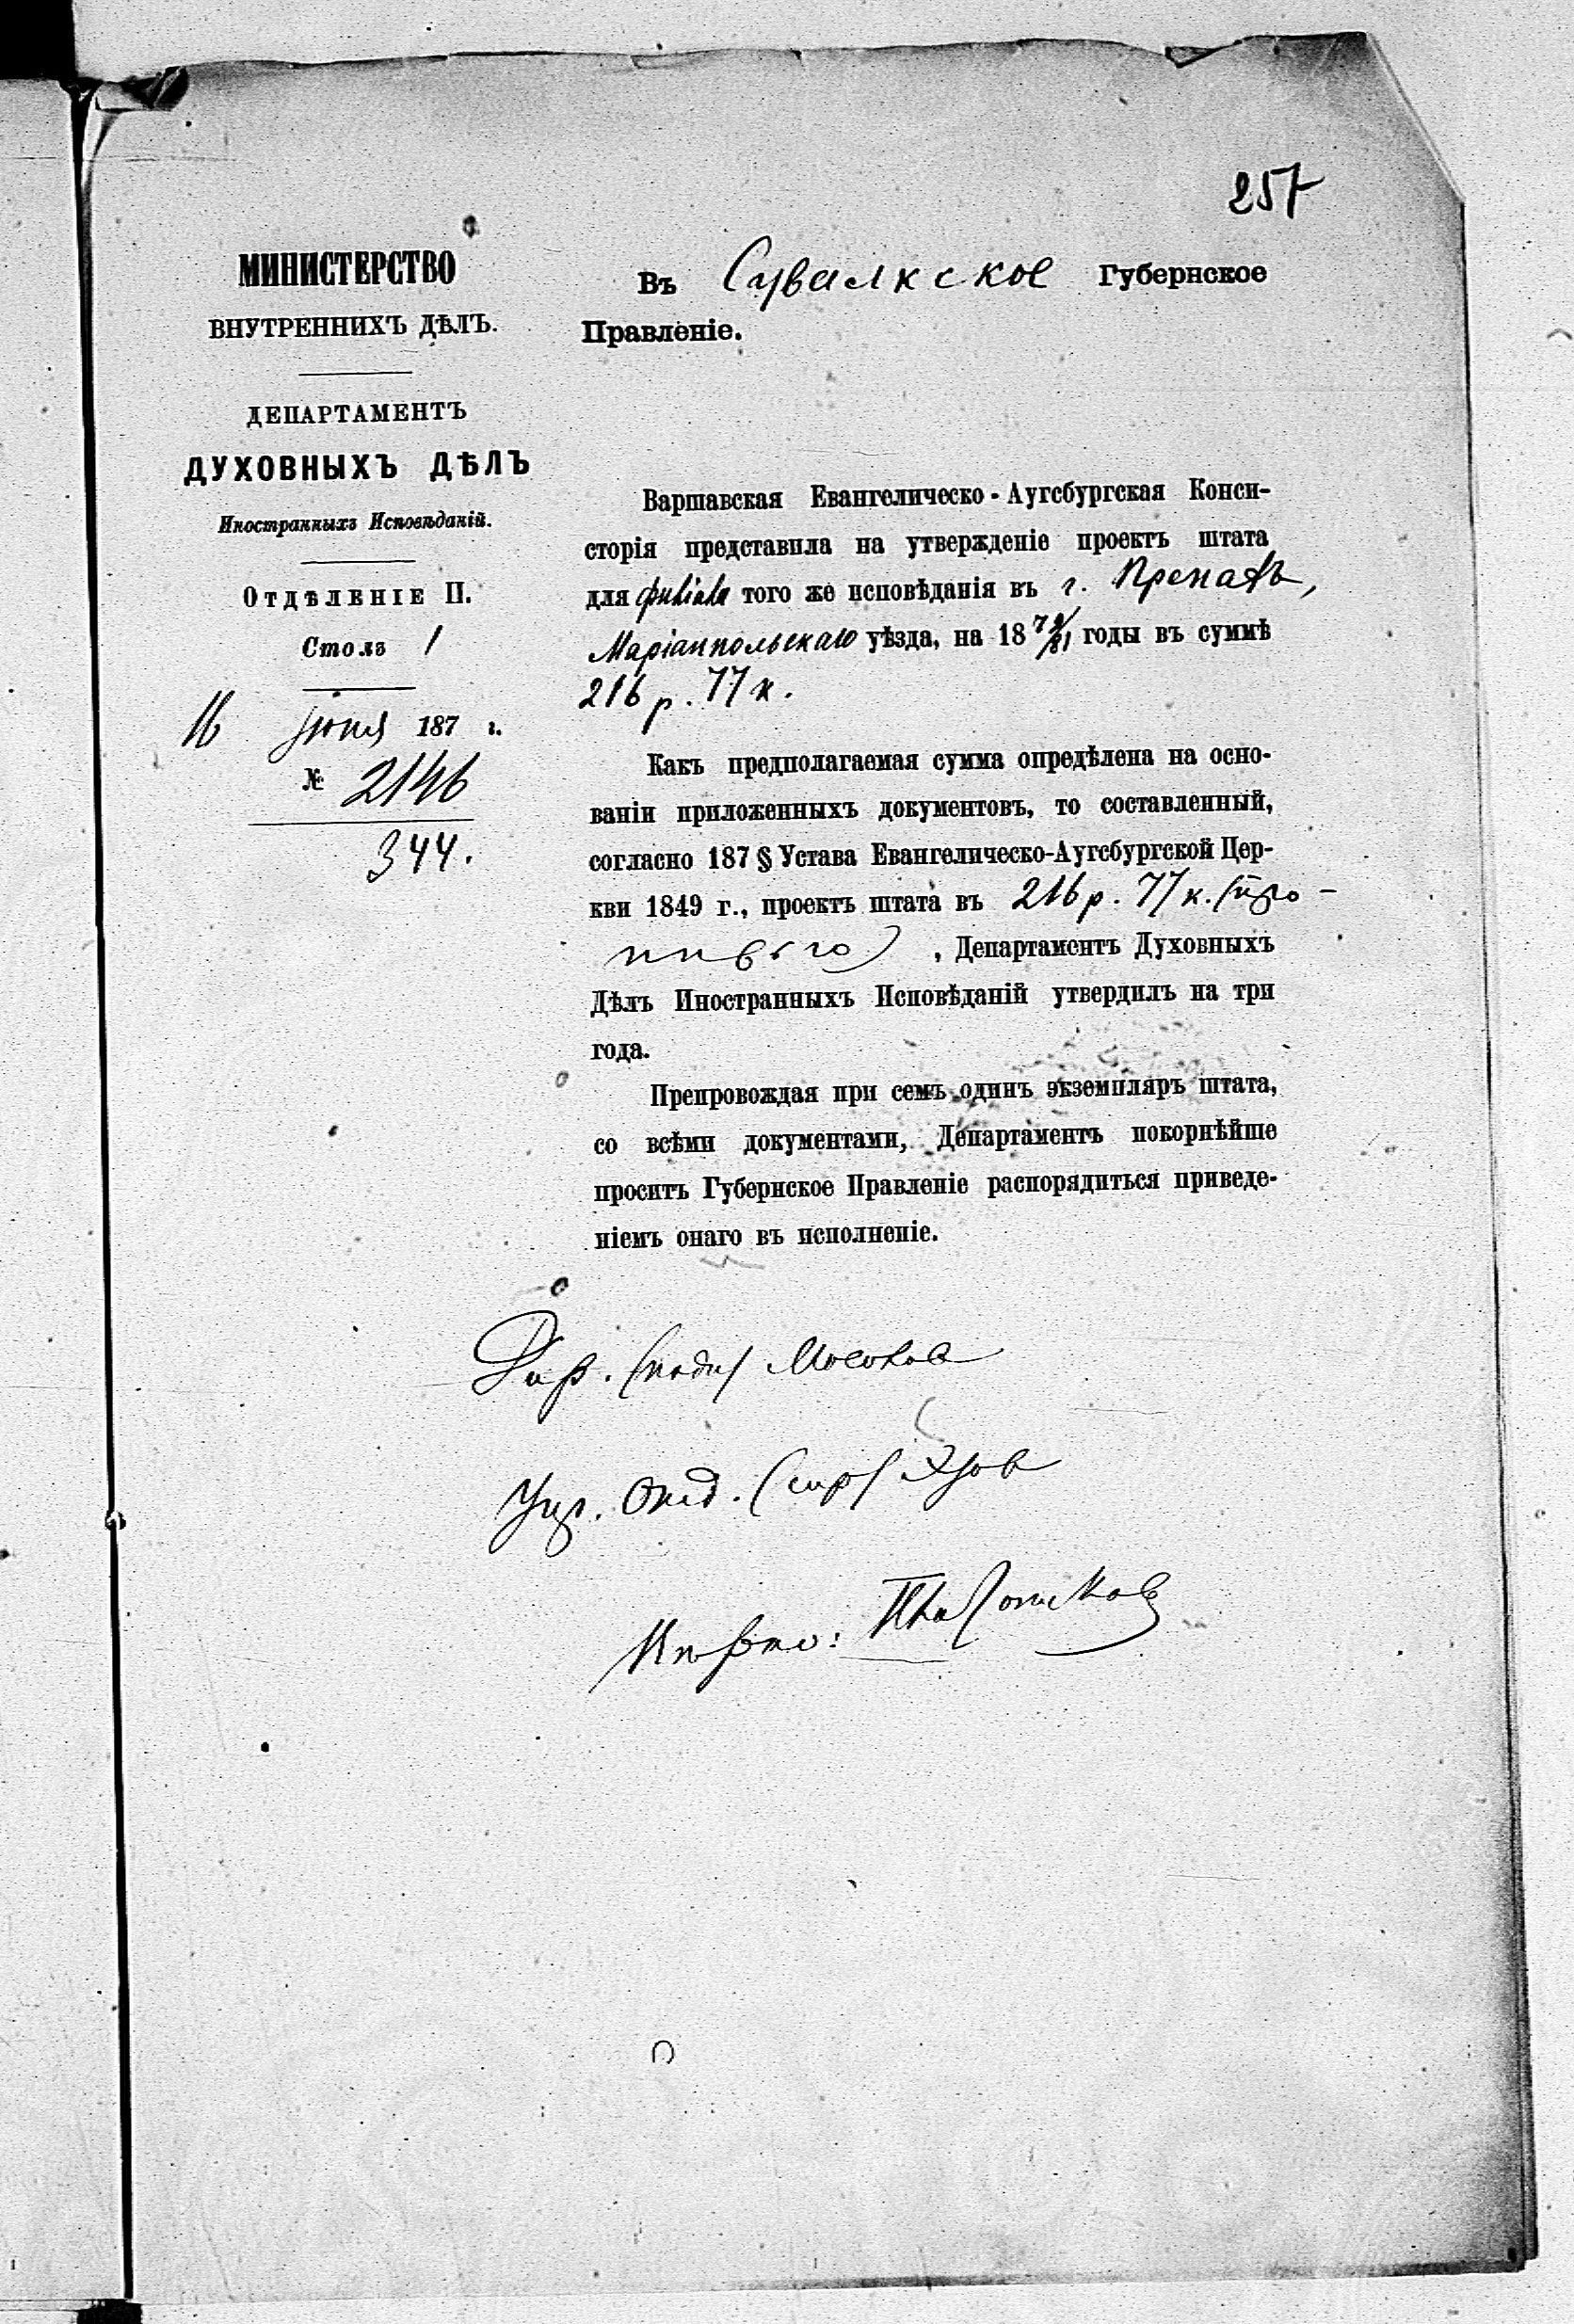 257
МИНИСТЕРСТВО
ВНУТРЕННИХЪ ДѢЛЪ.
ДЕПАРТАМЕНТЪ
ДУХОВНЫХЪ ДѢЛЪ
Иностранныхъ Исповѣданій.
Отдѣленіе II.
Столъ 1
16 Іюня 187 г.
№ 2146
344.
Въ Сувалкское Губернское
Правленіе.
Варшавская Евангелическо-Аугсбургская Конси-
сторія представила на утвержденіе проектъ штата
для филіала того же исповѣданія въ г. Пренахъ,
Маріампольскаго уѣзда, на 1879/81 годы въ суммѣ
216 р. 77 к.
Какъ предполагаемая сумма опредѣлена на осно-
ваніи приложенныхъ документовъ, то составленный,
согласно 187 § Устава Евангелическо-Аугсбургской Цер-
кви 1849 г., проектъ штата въ 216 р. 77 к.
, Департаментъ Духовныхъ
Дѣлъ Иностранныхъ Исповѣданій утвердилъ на три
года.
Препровождая при семъ одинъ экземпляръ штата,
со всѣми документами, Департаментъ покорнѣйше
проситъ Губернское Правленіе распорядиться приведе-
ніемъ онаго въ исполненіе.
Дир. (подп) Мосолов
Упр. Отд.
Вѣрно: